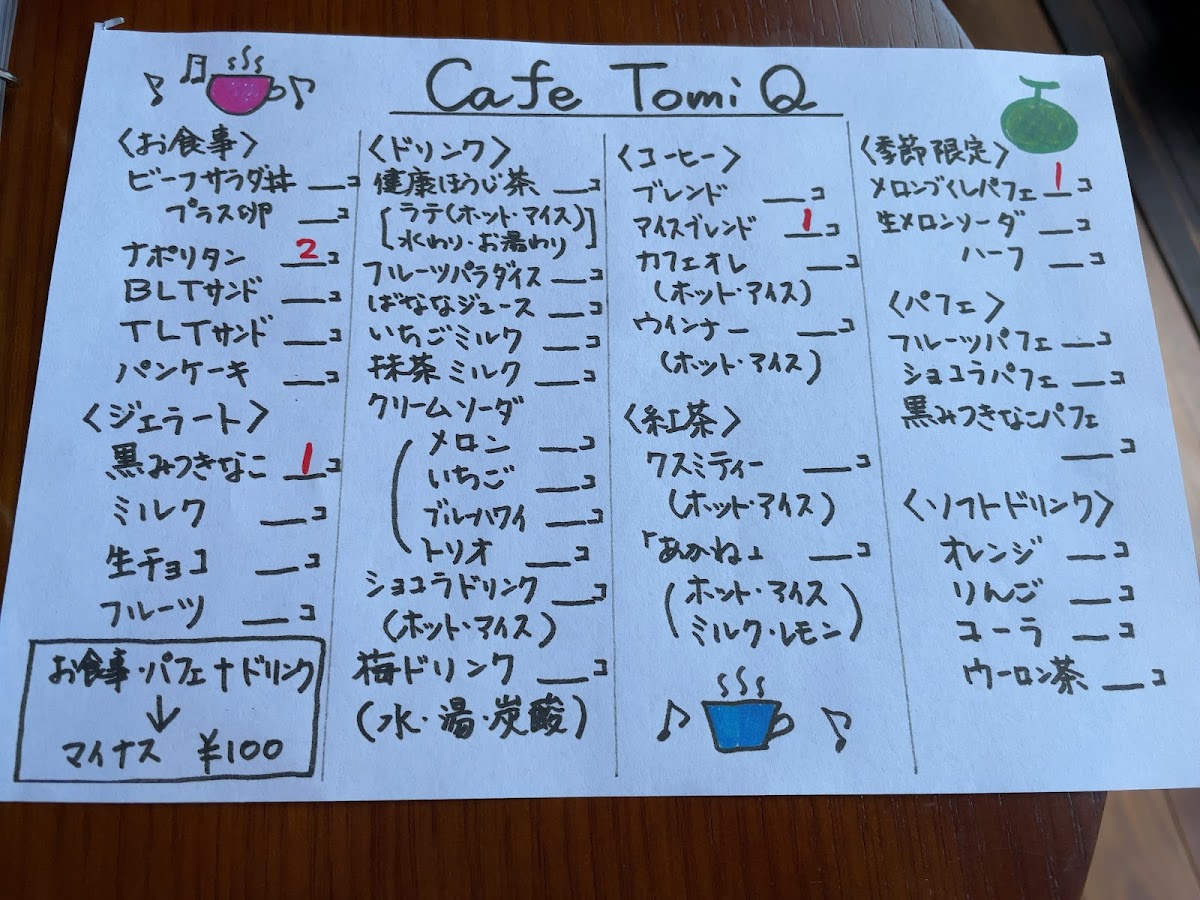 Cafe Tomi Q
〈お食事〉
ビーフサラダ丼 __コ
プラス卵 __コ
ナポリタン 2コ
BLTサンド __コ
TLTサンド __コ
パンケーキ __コ
〈ジェラート〉
黒みつきなこ 1コ
ミルク __コ
生チョコ __コ
フルーツ __コ
お食事・パフェ+ドリンク
↓
マイナス ¥100
〈ドリンク〉
健康ほうじ茶 __コ
[ラテ(ホット・アイス)
水わり・お湯わり]
フルーツパラダイス __コ
ばななジュース __コ
いちごミルク __コ
抹茶ミルク __コ
クリームソーダ
メロン __コ
いちご __コ
ブルーハワイ __コ
トリオ __コ
ショコラドリンク __コ
(ホット・アイス)
梅ドリンク __コ
(水・湯・炭酸)
〈コーヒー〉
ブレンド __コ
アイスブレンド 1コ
カフェオレ __コ
(ホット・アイス)
ウインナー __コ
(ホット・アイス)
〈紅茶〉
クスミティー __コ
(ホット・アイス)
「あかね」 __コ
(ホット・アイス
ミルク・レモン)
〈季節限定〉
メロンづくしパフェ 1コ
生メロンソーダ __コ
ハーフ __コ
〈パフェ〉
フルーツパフェ __コ
ショコラパフェ __コ
黒みつきなこパフェ
__コ
〈ソフトドリンク〉
オレンジ __コ
りんご __コ
コーラ __コ
ウーロン茶 __コ